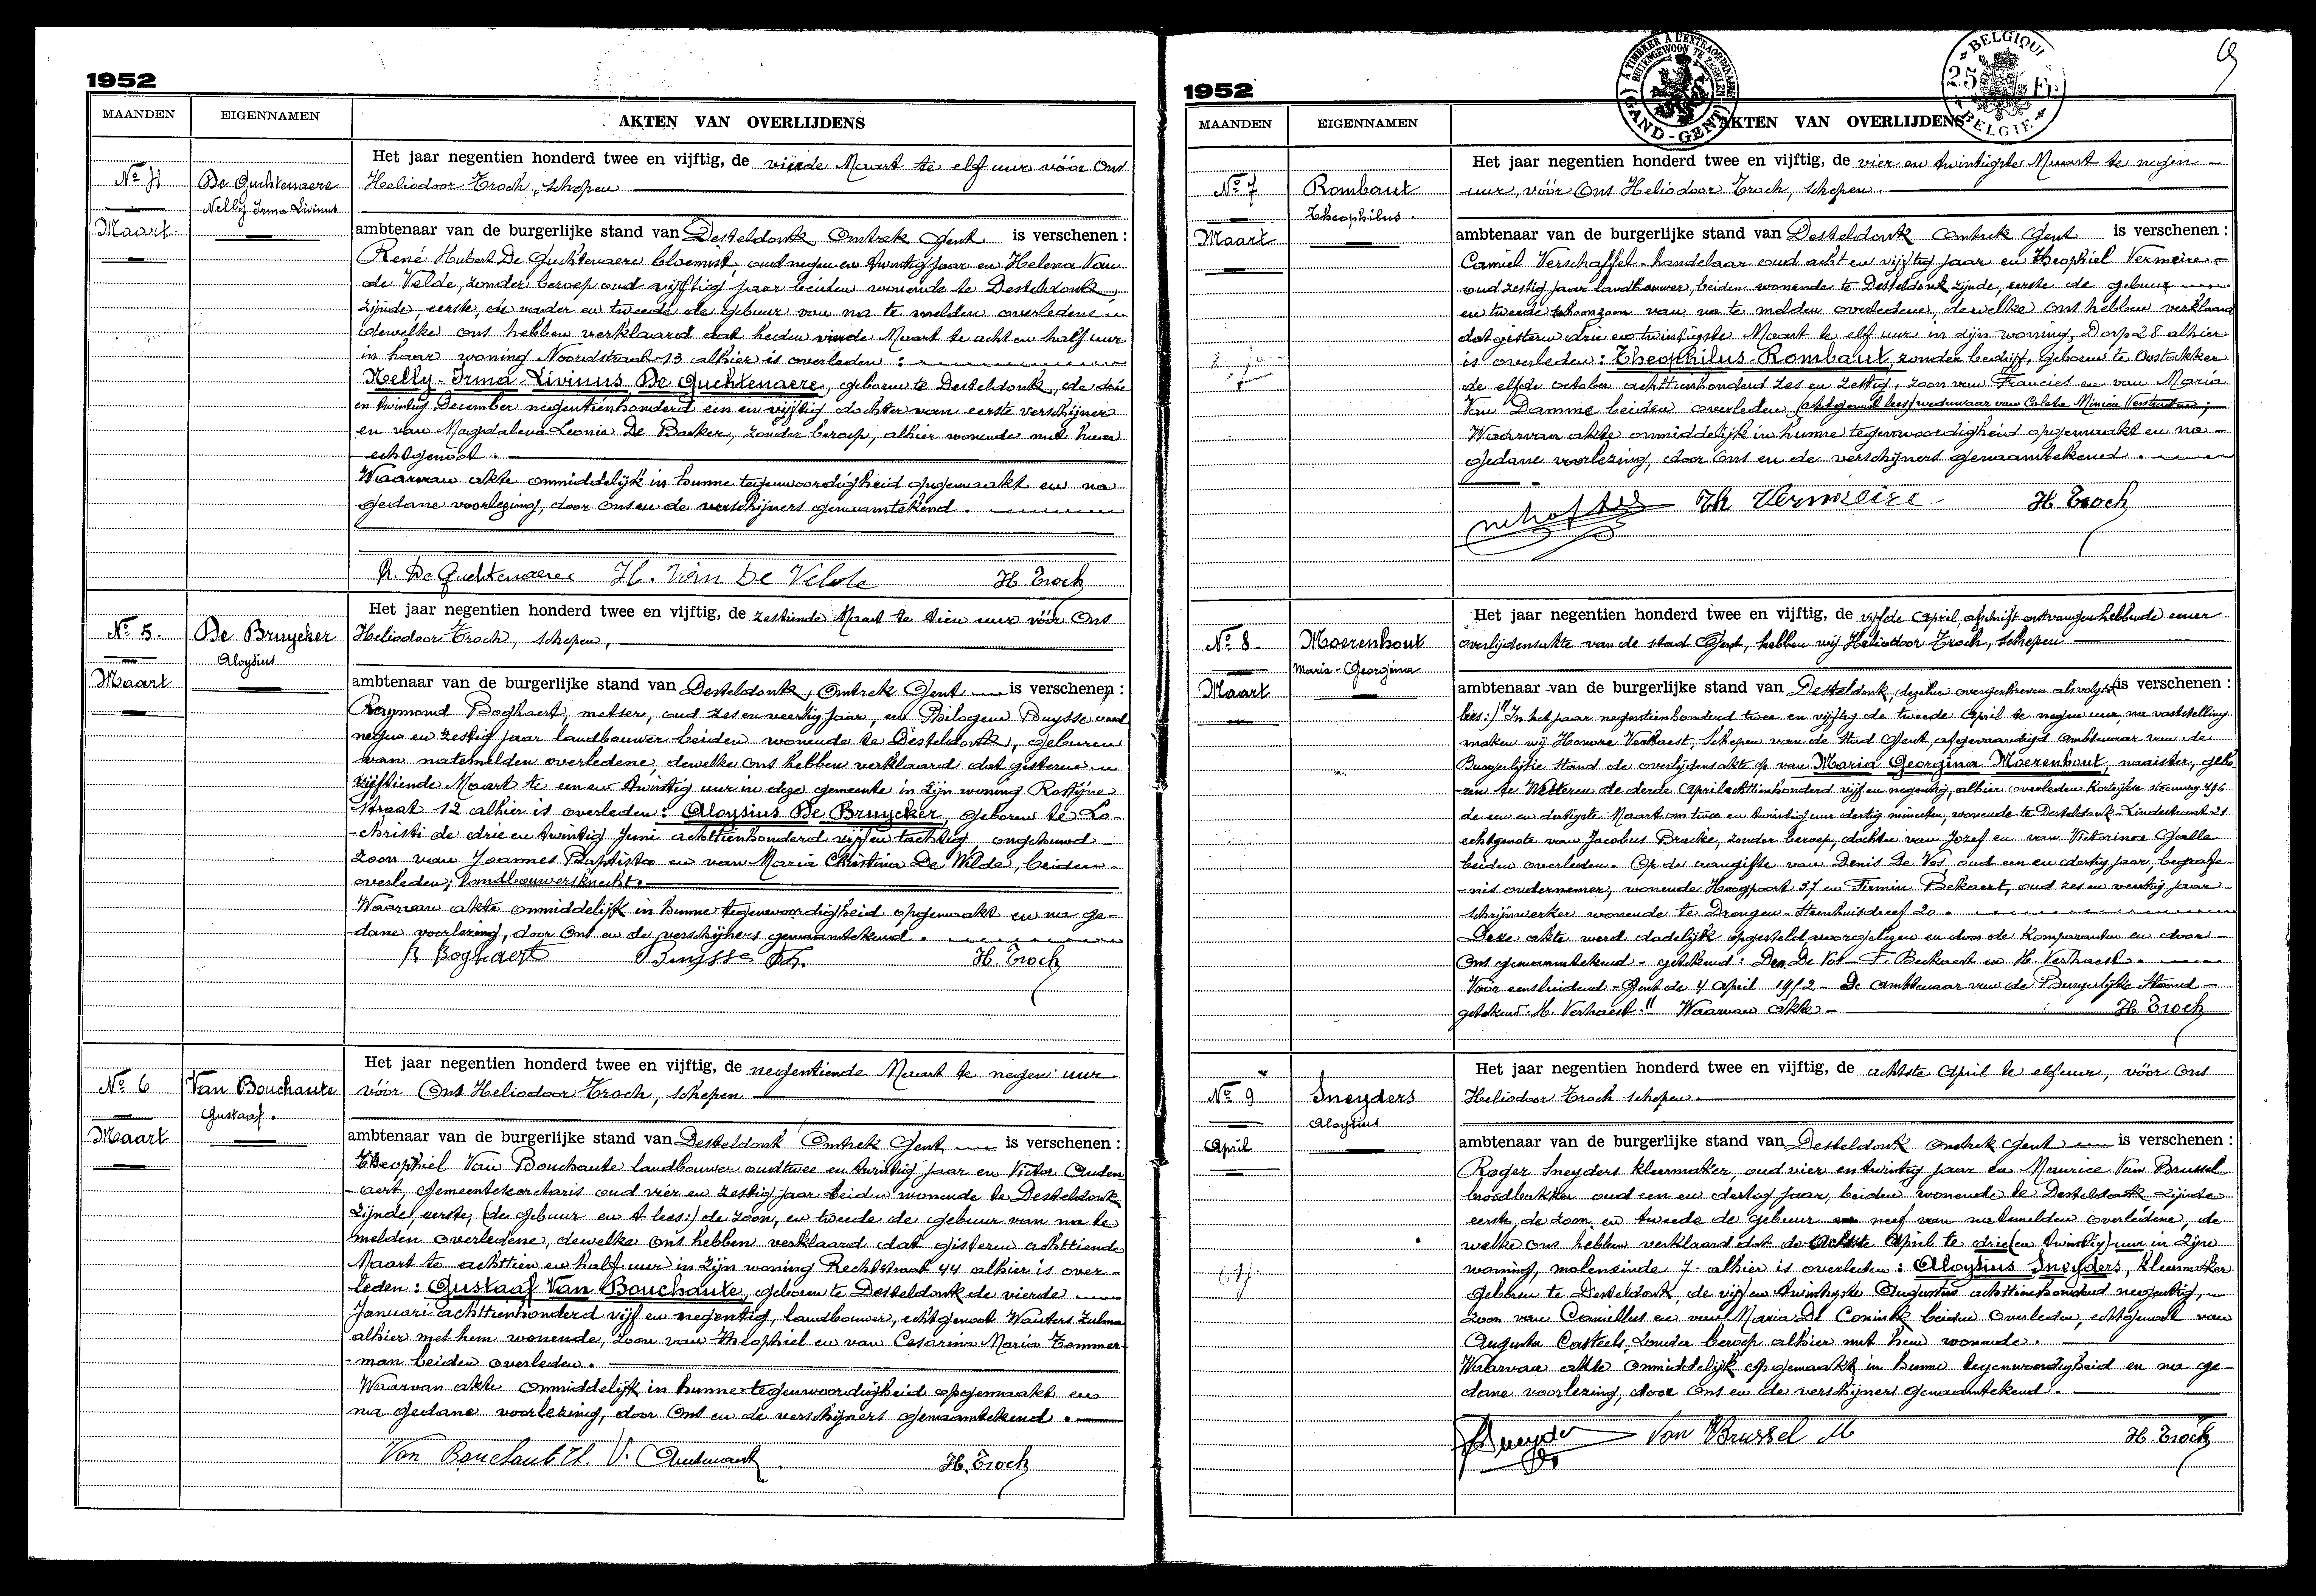 1952
MAANDEN
EIGENNAMEN
AKTEN VAN OVERLIJDENS
Het jaar negentien honderd twee en vijftig, de vierde Maart te elf uur vóór Ons
No 4
De Guchtenaere
Heliodoor Troch, schepen
Nelly Irma Livinus
Maart
ambtenaar van de burgerlijke stand van Desteldonk, Omtrek Gent is verschenen :
René Hubert De Guchtenaere bloemist, oud negen en twintig jaar en Helena Van
de Velde, zonder beroep oud vijftig jaar beiden wonende te Desteldonk,
zijnde, eerste, de vader en tweede de gebuur van na te melden overledene
dewelke ons hebben verklaard dat heden vierde Maart te acht en half uur
in haar woning Noordstraat 13 alhier is overleden :
Nelly-Irma-Livinus De Guchtenaere, geboren te Desteldonk, de drie
en twintig December negentienhonderd een en vijftig dochter van eerste verschijner
en van Magdalena Leonie De Backer, zonder beroep, alhier wonende met haar
echtgenoot.
Waarvan akte onmiddelijk in hunne tegenwoordigheid opgemaakt en na
gedane voorlezing, door Ons en de verschijners genaamtekend.
R. De Guchtenaere H. Van De Velde H. Troch
Het jaar negentien honderd twee en vijftig, de zestiende Maart te tien uur vóór Ons
No 5.
De Bruycker
Heliodoor Troch, schepen,
Aloysius
Maart
ambtenaar van de burgerlijke stand van Desteldonk, Omtrek Gent is verschenen :
Raymond Boghaert, metser, oud zes en veertig jaar, en Philogeen Buysse oud
negen en zestig jaar landbouwer beiden wonende te Desteldonk, geburen
van natemelden overledene, dewelke ons hebben verklaard dat gisteren
vijftiende Maart te een en twintig uur in deze gemeente in zijn woning Rostijne
straat 12 alhier is overleden : Aloysius De Bruycker, geboren te Lo-
-christi de drie en twintig Juni achttienhonderd vijf en tachtig, ongehuwd
zoon van Joannes Baptista en van Maria Christina De Wilde, beiden
overleden; landbouwersknecht.
Waarvan akte onmiddelijk in hunne tegenwoordigheid opgemaakt en na ge-
dane voorlezing, door Ons en de verschijners genaamtekend.
R Boghaert Buysse Ph. H. Troch
Het jaar negentien honderd twee en vijftig, de negentiende Maart te negen uur
No 6
Van Bouchaute
vóór Ons Heliodoor Troch, schepen
Gustaaf.
Maart
ambtenaar van de burgerlijke stand van Desteldonk Omtrek Gent is verschenen :
Theophiel Van Bouchaute landbouwer oud twee en twintig jaar en Victor Ouden
-aert, gemeentesecretaris oud vier en zestig jaar beiden wonende te Desteldonk
zijnde, eerste, (de gebuur en t lees:) de zoon, en tweede de gebuur van na te
melden overledene, dewelke ons hebben verklaard dat gisteren achttiende
Maart te achttien en half uur in zijn woning Rechtstraat 44 alhier is over-
leden : Gustaaf Van Bouchaute, geboren te Desteldonk de vierde
Januari achttienhonderd vijf en negentig, landbouwer, echtgenoot Wauters Zulma
alhier met hem wonende, zoon van Theophiel en van Cesarina Maria Temmer-
-man beiden overleden.
Waarvan akte onmiddelijk in hunne tegenwoordigheid opgemaakt en
na gedane voorlezing, door Ons en de verschijners genaamtekend.
Van Bouchaute Th. V. Oudenaert H. Troch
1952
A TIMBRER A L'EXTRAORDINAIRE
BUITENGEWOON TE ZEGELEN
GAND-GENT
BELGIQUE
25 Fr
BELGIE
MAANDEN
EIGENNAMEN
AKTEN VAN OVERLIJDENS
Het jaar negentien honderd twee en vijftig, de vier en twintigste Maart te negen
No 7
Rombaut
uur, vóór Ons Heliodoor Troch, schepen.
Theophilus.
Maart
ambtenaar van de burgerlijke stand van Desteldonk Omtrek Gent is verschenen :
Camiel Verschaffel handelaar oud acht en vijftig jaar en Theophiel Vermeire
oud zestig jaar landbouwer, beiden wonende te Desteldonk zijnde, eerste de gebuur
en tweede schoonzoon van na te melden overledene, dewelke ons hebben verklaard
dat gisteren drie en twintigste Maart te elf uur in zijn woning, Dorp 28 alhier
is overleden : Theophilus Rombaut, zonder bedrijf, geboren te Oostakker
de elfde october achttienhonderd zes en zestig, zoon van Franciet en van Maria
Van Damme beiden overleden (echtgenoot lees) weduwnaar van Coleta Minica Verstraeten;
Waarvan akte onmiddelijk in hunne tegenwoordigheid opgemaakt en na
gedane voorlezing, door Ons en de verschijners genaamtekend.
Th Vermeire H. Troch
Het jaar negentien honderd twee en vijftig, de vijfde April, afschrift ontvangen hebbende eener
No 8
Moerenhout
overlijdensakte van de stad Gent, hebben wij Heliodoor Troch, schepen
Maria-Georgina
Maart
ambtenaar van de burgerlijke stand van Desteldonk, dezelve overgeschreven als volgt (is verschenen :
lees:) "In het jaar negentienhonderd twee en vijftig de tweede April te negen uur, na vaststelling
maken wij Honoré Verhaest, Schepen van de Stad Gent, afgevaardigd ambtenaar van de
Burgerlijke Stand de overlijdensakte op van Maria Georgina Moerenhout, naaister, gebo
-ren te Wetteren de derde April achttienhonderd vijf en negentig, alhier overleden Kortrijkse steenweg 496
de een en dertigste Maart om twee en twintig uur dertig minuten, wonende te Desteldonk Lindestraat 21
echtgenote van Jacobus Bracke, zonder beroep, dochter van Jozef en van Victorina Galle
beiden overleden. Op de aangifte van Denis De Vos, oud een en dertig jaar, begrafe-
-nis ondernemer, wonende Hoogpoort 37 en Firmin Bekaert, oud zes en veertig jaar
schrijnwerker wonende te Drongen Steenhuisdreef 20.
Deze akte werd dadelijk opgesteld voorgelezen en door de Komparanten en door
Ons genaamtekend - getekend: Den. De Vos F. Bekaert en H. Verhaest.
Voor eensluidend - Gent de 4 April 1952 - De Ambtenaar van de Burgerlijke Stand
getekend: H. Verhaest." Waarvan akte H. Troch
Het jaar negentien honderd twee en vijftig, de achtste April te elf uur, vóór Ons
No 9
Sneyders
Heliodoor Troch schepen.
Aloysius
April
ambtenaar van de burgerlijke stand van Desteldonk Omtrek Gent is verschenen :
Roger Sneyders kleermaker, oud vier en twintig jaar en Maurice Van Brussel
broodbakker oud een en dertig jaar, beiden wonende te Desteldonk zijnde
eerste, de zoon, en tweede de gebuur en neef van natemelden overledene, de
welke ons hebben verklaard dat de Achtste April te drie (en twintig) uur in zijn
woning, moleneinde 7 alhier is overleden : Aloysius Sneyders, kleermaker
geboren te Desteldonk, de vijf en twintigste Augustus achttienhonderd negentig,
zoon van Camiellus en van Maria De Coninck beiden Overleden, echtgenoot van
Augusta Casteels, zonder beroep alhier met hem wonende.
Waarvan akte Onmiddelijk opgemaakt in hunne tegenwoordigheid en na ge-
dane voorlezing, door Ons en de verschijners genaamtekend.
Sneyders Van Brussel M H. Troch